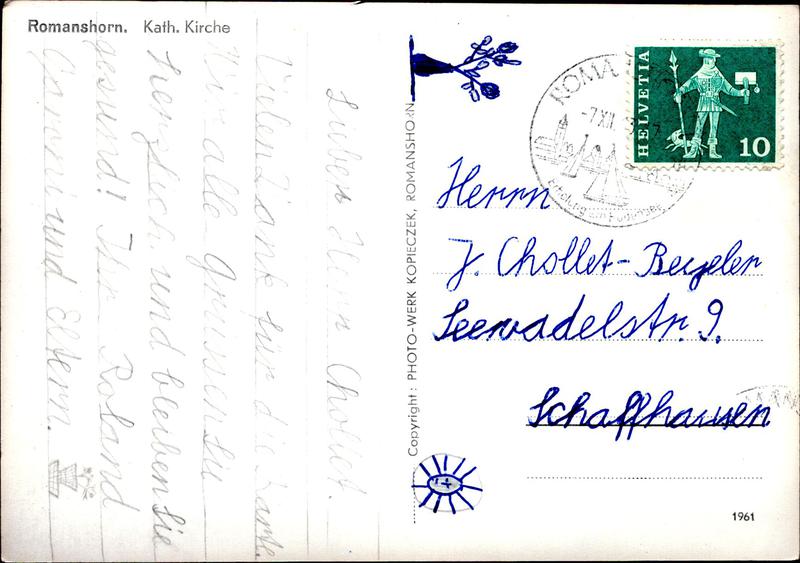 Romanshorn. Kath. Kirche
Lieber Herr Chollet.
Vielen Dank für die Karte.
Wir alle grüssen Sie
herzlich und bleiben Sie
gesund! Ihr Roland
Gommi und Eltern.
Copyright: PHOTO-WERK KOPIECZEK, ROMANSHORN
HELVETIA
10
-7.XII.
Erholung am Bodensee
Herrn
J. Chollet-Beyeler
Seewadelstr. 9.
Schaffhausen
1961